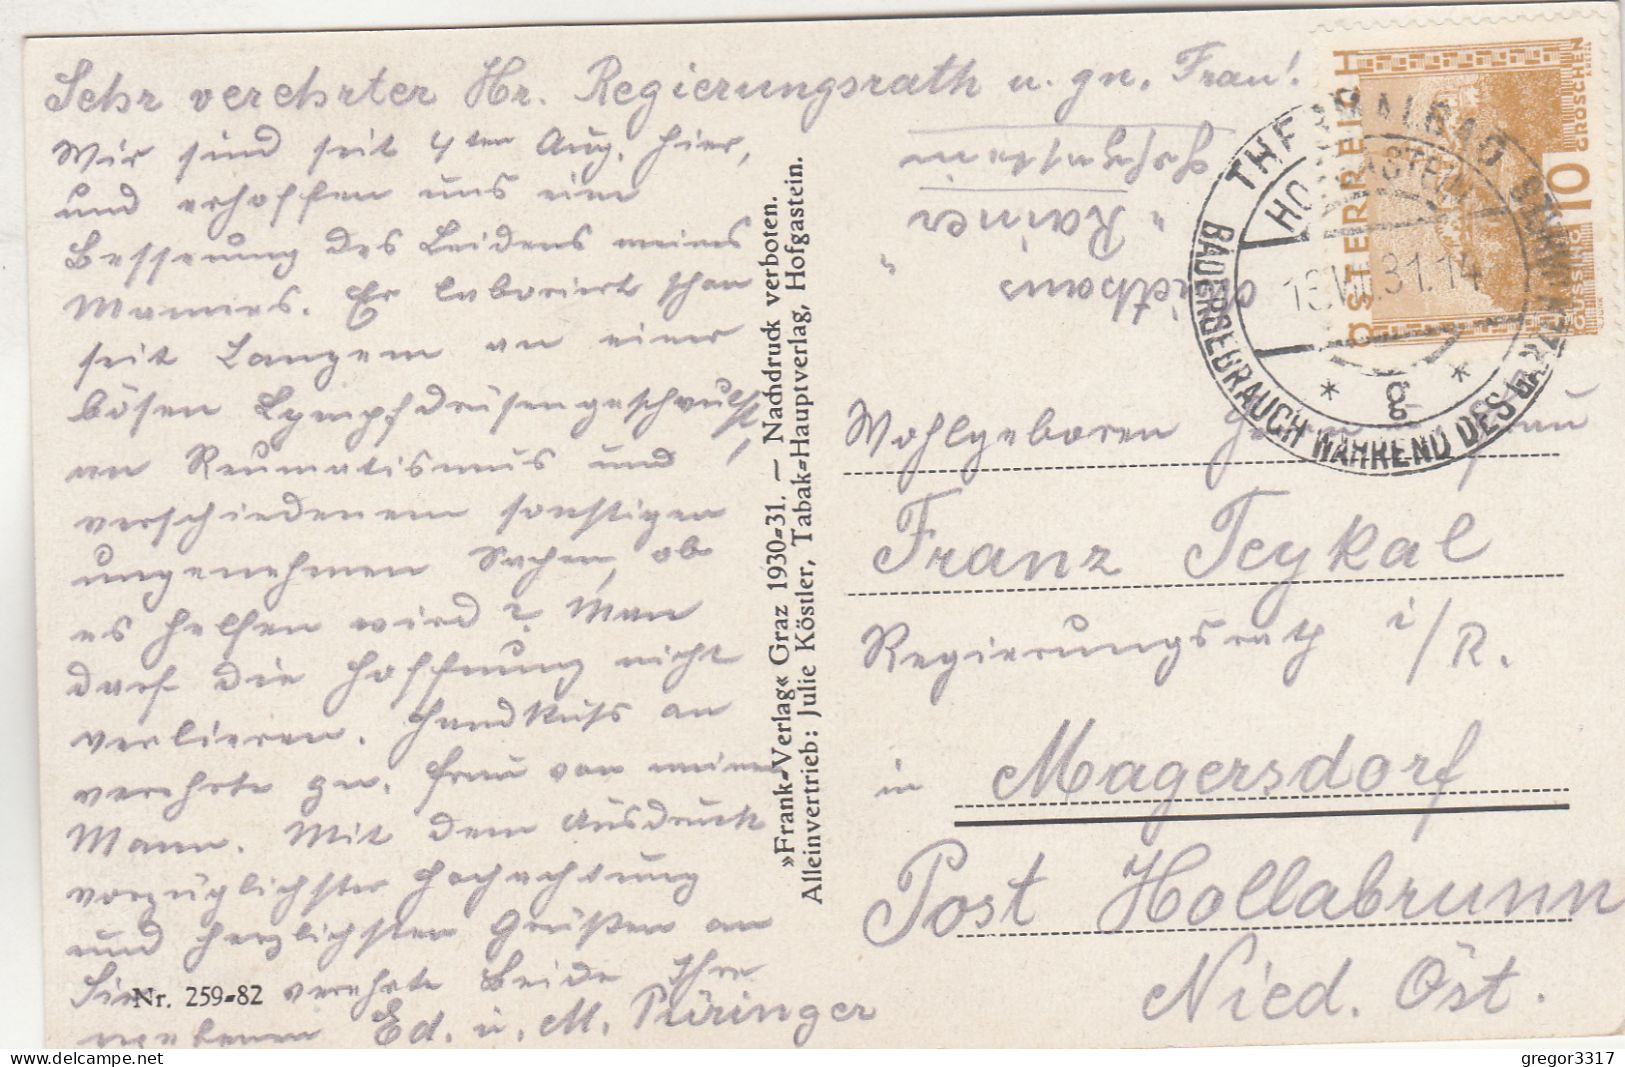 Sehr verehrter Hr. Regierungsrath u. gn. Frau!
Wir sind seit 4ten Aug. hier,
und erhoffen uns eine
Besserung des Leidens meines
Mannes. Er laboriert schon
seit Langem an einer
bösen Lympfdrüsengeschwulst,
an Reumatismus und
verschiedenem sonstigen
ungenehmen Sachen, ob
es helfen wird? Man
darf die Hoffnung nicht
verlieren. Handkuß an
verehrte gn. Frau von meinem
Mann. Mit dem Ausdruck
vorzüglichster Hochachtung
und herzlichsten Grüßen an
Sie verehrte Beide Ihre
ergebenen Ed. u. M. Püringer
Nr. 259-82
»Frank-Verlag« Graz 1930-31. — Nachdruck verboten.
Alleinvertrieb: Julie Köstler, Tabak-Hauptverlag, Hofgastein.
"Rainer"
Hofgastein
ÖSTERREICH
10 GROSCHEN
GÜSSING
THERMALBAD
HOFGASTEIN
BÄDERGEBRAUCH WÄHREND DES GANZEN
31.14
* g *
Wohlgeboren
Franz Teykal
Regierungsrath i/R.
in Magersdorf
Post Hollabrunn
Nied. Öst.
gregor3317